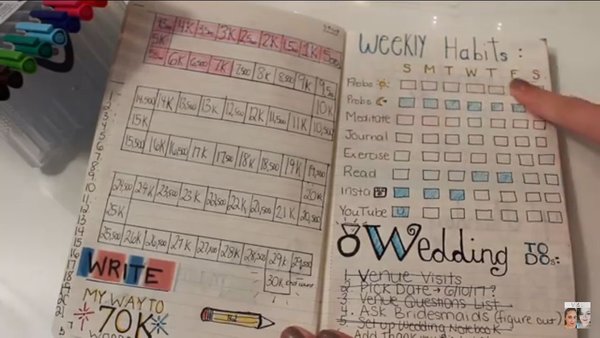 4K 3K 2K 1K
5K
6K 6,500 7K 7,500 8K 8,500 9K 9,500
10K
14,500 14K 13,500 13K 12,500 12K 11,500 11K 10,500
15K
15,500 16K 16,500 17K 17,500 18K 18,500 19K 19,500
20K
24,500 24K 23,500 23K 22,500 22K 21,500 21K 20,500
25K
25,500 26K 26,500 27K 27,500 28K 28,500 29K 29,500
30K
WRITE
MY WAY TO
70K
WEEKLY Habits:
S M T W T F S
Probs
Probs
Meditate
Journal
Exercise
Read
Insta
YouTube
Wedding TO DOs:
1. Venue Visits
2. Pick Date → 6/10/17?
3. Venue Questions List
4. Ask Bridesmaids (figure out)
5. Set up Wedding Notebook